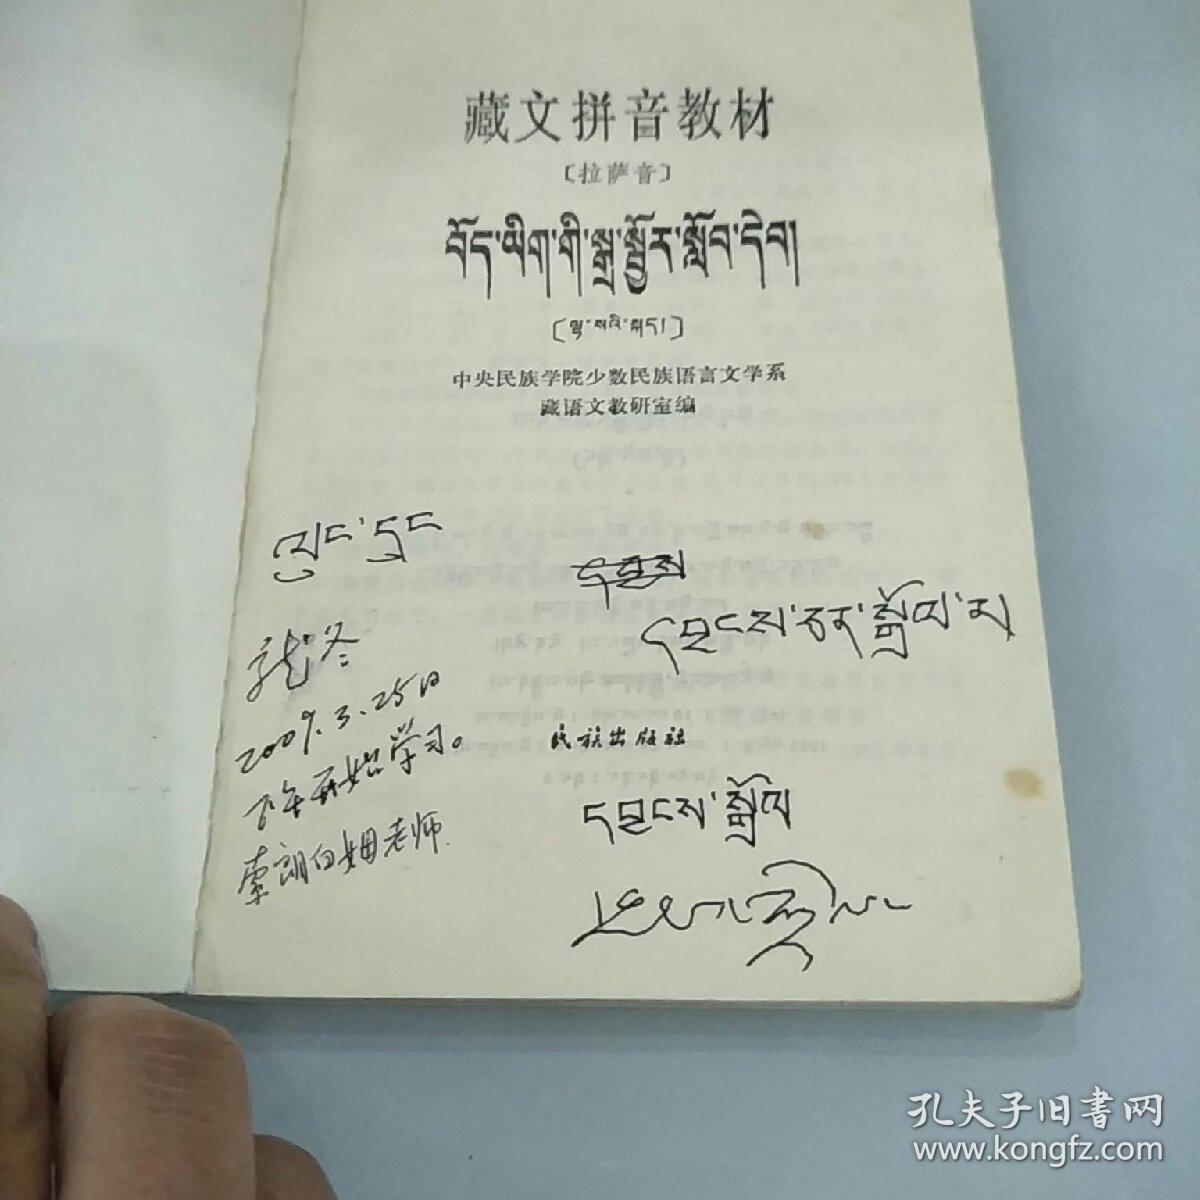 藏文拼音教材
〔拉萨音〕
བོད་ཡིག་གི་སྒྲ་སྦྱོར་སློབ་དེབ།
〔ལྷ་སའི་སྐད།〕
中央民族学院少数民族语言文学系
藏语文教研室编
ལུང་དུང
龙冬
2009.3.25日
下午开始学习。
索朗白姆老师
དབྱངས་ཅན་སྒྲོལ་མ
民族出版社
དབྱངས་སྒྲོལ
孔夫子旧书网
www.kongfz.com